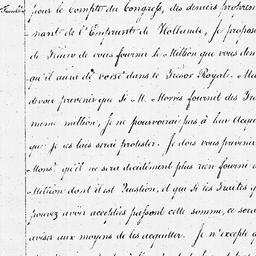 pour le compte du Congress, des deniers proven
nant de l'Emprunt de Hollande, je propose
de vous fournir le Million que vous
qu'il aura de versé dans le Trésor Royal. Ma
devoir prevenir que si M. Morris fournit des
meme million, Je ne pourvoirai pas à leur acqu
que je les lais serai protester. Je dois vous preveni
qu'il ne sera decidément plus rien fourni
Million dont il est Question, et que si les Traites
pouvez avoir acceptées passent cette somme, ce sera
aviser aux moyens de les acquitter. Je n'excepte